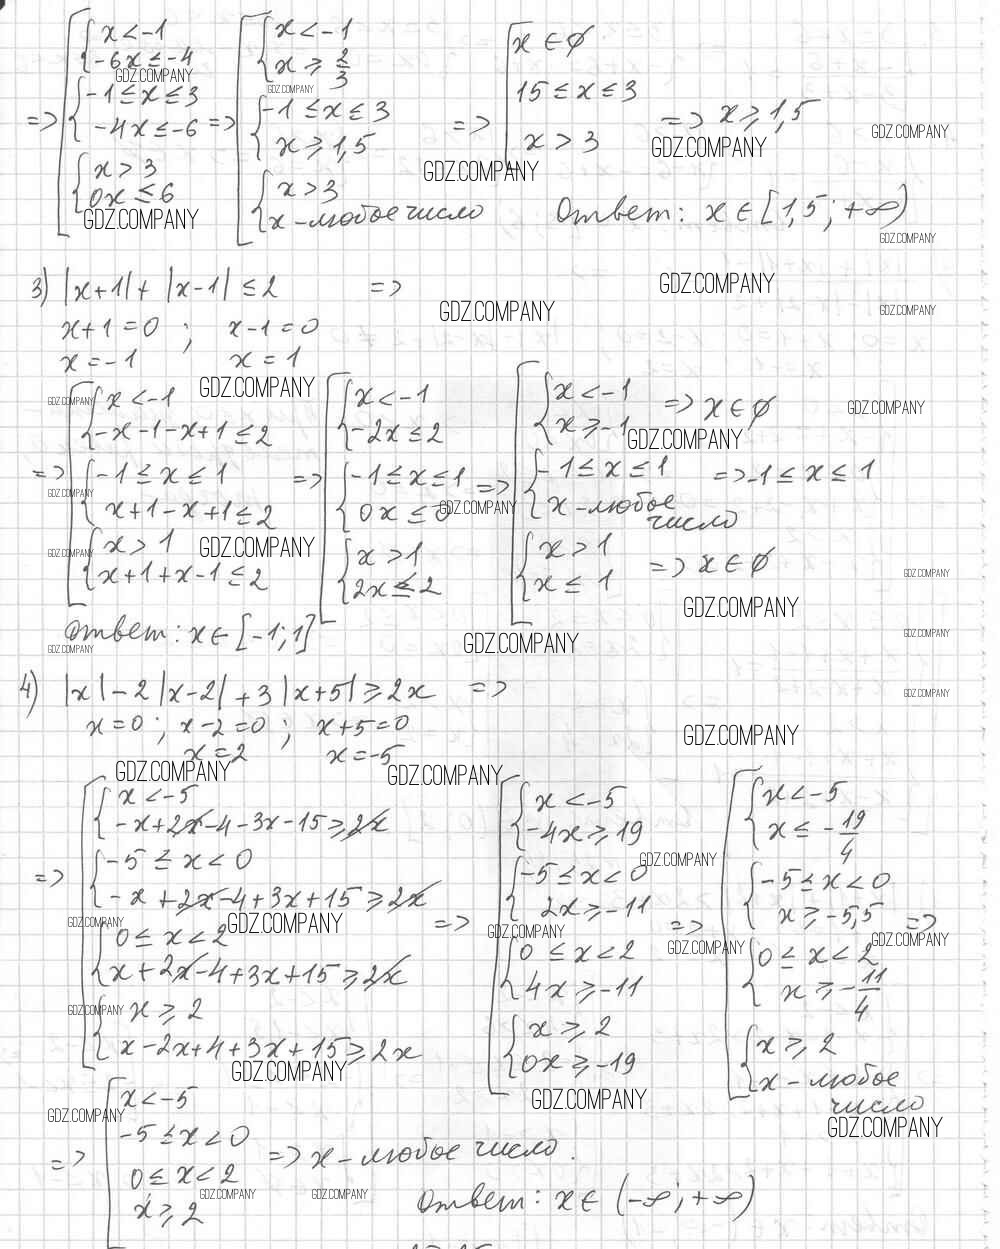 => [ { x < -1 ; -6x ≤ -4 ; { -1 ≤ x ≤ 3 ; -4x ≤ -6 ; { x > 3 ; 0x ≤ 6
=> [ { x < -1 ; x ≥ 2/3 ; { -1 ≤ x ≤ 3 ; x ≥ 1,5 ; { x > 3 ; x - любое число
=> [ x ∈ ∅ ; 15 ≤ x ≤ 3 ; x > 3 => x ≥ 1,5
Ответ: x ∈ [1,5; +∞)
3) |x+1| + |x-1| ≤ 2 =>
x+1=0 ; x-1=0
x=-1 x=1
=> [ { x < -1 ; -x-1-x+1 ≤ 2 ; { -1 ≤ x ≤ 1 ; x+1-x+1 ≤ 2 ; { x > 1 ; x+1+x-1 ≤ 2
=> [ { x < -1 ; -2x ≤ 2 ; { -1 ≤ x ≤ 1 ; 0x ≤ 0 ; { x > 1 ; 2x ≤ 2
=> [ { x < -1 ; x ≥ -1 => x ∈ ∅ ; { -1 ≤ x ≤ 1 ; x - любое число => -1 ≤ x ≤ 1 ; { x > 1 ; x ≤ 1 => x ∈ ∅
Ответ: x ∈ [-1; 1]
4) |x| - 2|x-2| + 3|x+5| ≥ 2x =>
x=0 ; x-2=0 ; x+5=0
x=2 x=-5
=> [ { x < -5 ; -x+2x-4-3x-15 ≥ 2x ; { -5 ≤ x < 0 ; -x+2x-4+3x+15 ≥ 2x ; { 0 ≤ x < 2 ; x+2x-4+3x+15 ≥ 2x ; { x ≥ 2 ; x-2x+4+3x+15 ≥ 2x
=> [ { x < -5 ; -4x ≥ 19 ; { -5 ≤ x < 0 ; 2x ≥ -11 ; { 0 ≤ x < 2 ; 4x ≥ -11 ; { x ≥ 2 ; 0x ≥ -19
=> [ { x < -5 ; x ≤ -19/4 ; { -5 ≤ x < 0 ; x ≥ -5,5 ; { 0 ≤ x < 2 ; x ≥ -11/4 ; { x ≥ 2 ; x - любое число =>
=> [ x < -5 ; -5 ≤ x < 0 ; 0 ≤ x < 2 ; x ≥ 2 => x - любое число.
Ответ: x ∈ (-∞; +∞)
GDZ.COMPANY